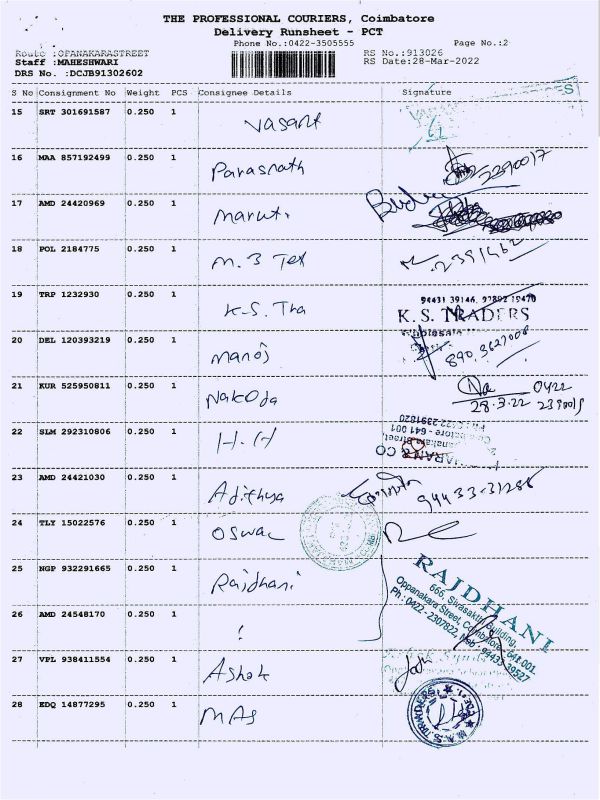 THE PROFESSIONAL COURIERS, Coimbatore
Delivery Runsheet - PCT
Phone No.:0422-3505555
Page No.:2
Route :OPANAKARASTREET
Staff :MAHESHWARI
DRS No. :DCJB91302602
RS No.:913026
RS Date:28-Mar-2022
S No Consignment No Weight PCS Consignee Details Signature
15 SRT 301691587 0.250 1 Vasant
16 MAA 857192499 0.250 1 Parasnath 2390017
17 AMD 24420969 0.250 1 Maruti
18 POL 2184775 0.250 1 M. B Tex 2391462
19 TRP 1232930 0.250 1 K.S. Tra
94431 39146, 97892 19470
K. S. TRADERS
20 DEL 120393219 0.250 1 Manoj 890.3627008
21 KUR 525950811 0.250 1 Nakoda 0422
28.3.22 2390015
22 SLM 292310806 0.250 1 H.H
641 001
0422 2391820
& CO
23 AMD 24421030 0.250 1 Adithya 94433-31286
24 TLY 15022576 0.250 1 Oswal
25 NGP 932291665 0.250 1 Rajdhani
RAJDHANI
666, Sivasakthi Building,
Oppanakara Street, Coimbatore - 641 001.
Ph : 0422 - 2307822, Mob : 94433 39527
26 AMD 24548170 0.250 1 !
27 VPL 938411554 0.250 1 Ashok
28 EDQ 14877295 0.250 1 MAS
S. TRADERS